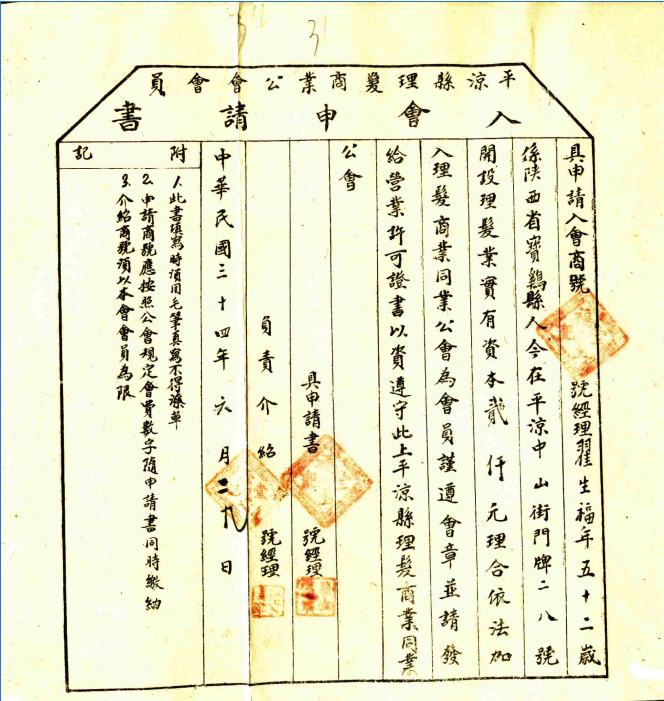 平涼縣理髮商業公會會員
入會申請書
具申請入會商號 號經理翟生福年五十二歲
係陝西省寶鷄縣人今在平涼中山街門牌二八號
開設理髮業實有資本貳仟元理合依法加
入理髮商業同業公會為會員謹遵會章並請發
給營業許可證書以資遵守此上平涼縣理髮商業同業
公會
具申請書 號經理
負責介紹 號經理
中華民國三十四年六月二九日
附記
1.此書填寫時須用毛筆真寫不得潦草
2.申請商號應按照公會規定會費數字隨申請書同時繳納
3.介紹商號須以本會會員為限
31